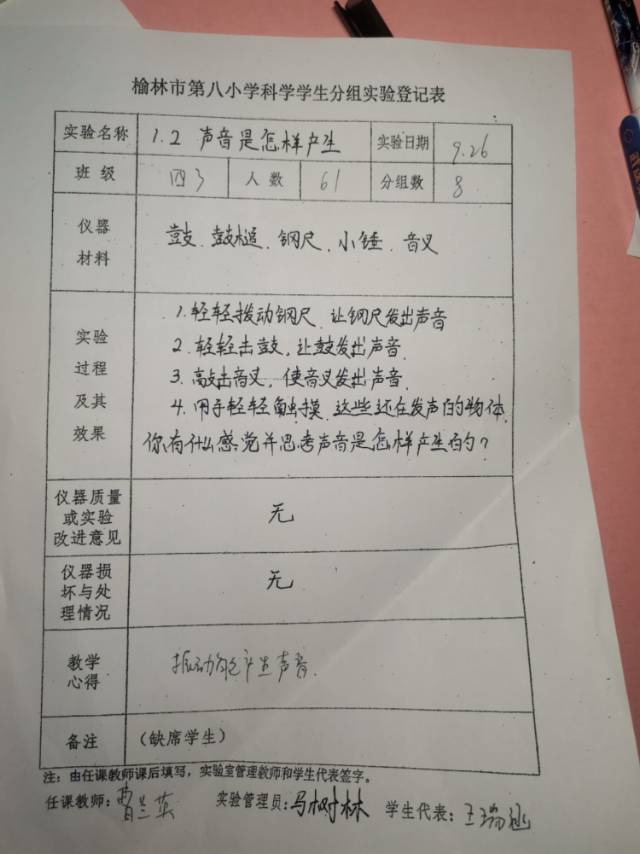 榆林市第八小学科学学生分组实验登记表
实验名称 1.2 声音是怎样产生 实验日期 9.26
班级 四3 人数 61 分组数 8
仪器
材料
鼓、鼓槌、钢尺、小锤、音叉
实验
过程
及其
效果
1.轻轻拨动钢尺、让钢尺发出声音
2.轻轻击鼓,让鼓发出声音.
3.敲击音叉,使音叉发出声音.
4.用手轻轻触摸、这些还在发声的物体、
你有什么感觉并思考声音是怎样产生的?
仪器质量
或实验
改进意见
无
仪器损
坏与处
理情况
无
教学
心得
振动能产生声音.
备注 (缺席学生)
注:由任课教师课后填写,实验室管理教师和学生代表签字。
任课教师:曹兰英 实验管理员:马树林 学生代表:王瑞